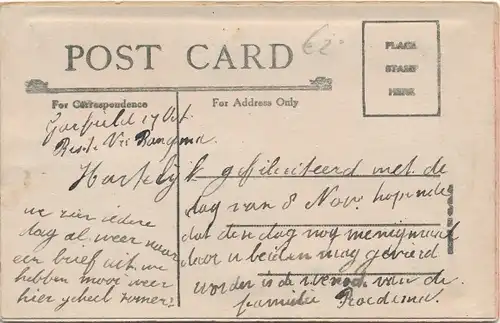 POST CARD
62.
PLACE
STAMP
HERE
For Correspondence
For Address Only
Garfield 17 Oct.
Beste Vri
Hartelijk gefiliciteerd met de
dag van 8 Nov. hopende
dat den dag nog menigmaal
door u beiden mag gevierd
worden is de wensch van de
familie
we zien iedere
dag al weer naar
een brief uit. we
hebben mooi weer
hier geheel zomer